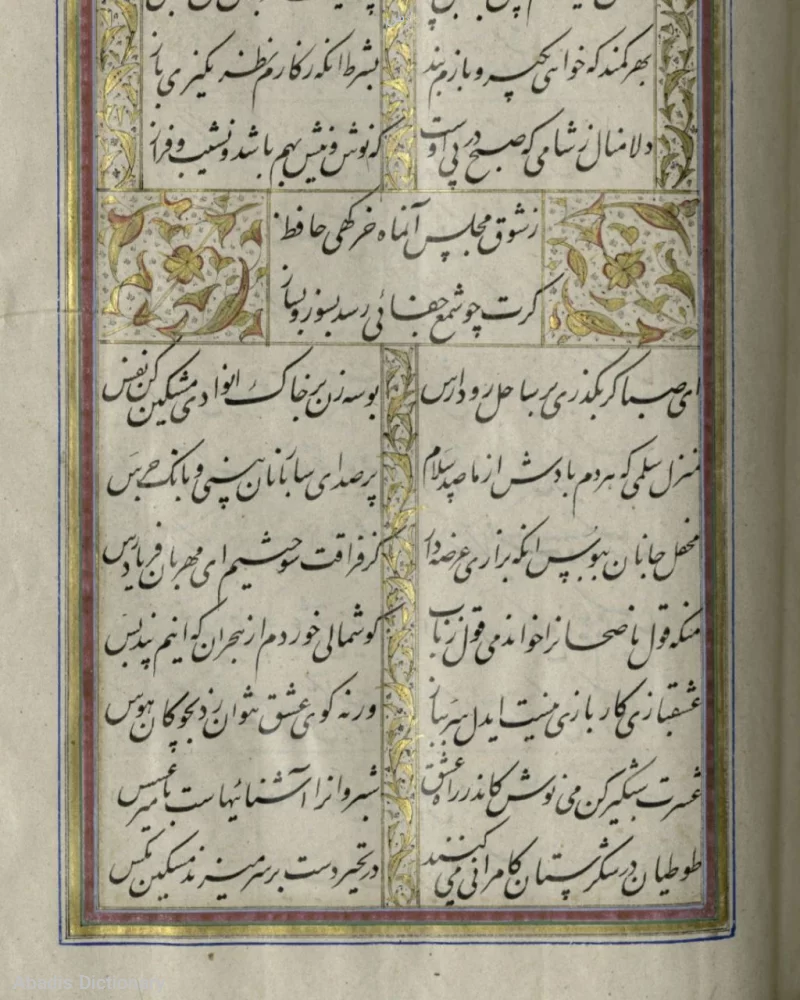 بهر کمند که خواهی بگیر و بازم بند
بشرط آنکه ز کارم نظر نگیری باز
دلا منال ز شامی که صبح در پی اوست
که نوش و نیش بهم باشد و نشیب و فراز
ز شوق مجلس آنماه خرگهی حافظ
گرت چو شمع جفائی رسد بسوز و بساز
ای صبا گر بگذری بر ساحل رود ارس
بوسه زن بر خاک آنوادی و مشکین کن نفس
منزل سلمی که هر دم بادش از ما صد سلام
پر صدای ساربانان بینی و بانک جرس
محمل جانان ببوس آنکه بزاری عرضه دار
کز فراقت سوختیم ای مهربان فریادرس
منکه قول ناصحانرا خواندمی قول رباب
گوشمالی خوردم از هجران که اینم پند بس
عشقبازی کار بازی نیست ایدل سر بباز
ورنه گوی عشق نتوان زد بچوگان هوس
عشرت شبگیر کن می نوش کاندر راه عشق
شبروانرا آشنائیهاست با میر عسس
طوطیان در شکرستان کامرانی می کنند
در تحیر دست بر سر میزند مسکین مگس
Abadis Dictionary